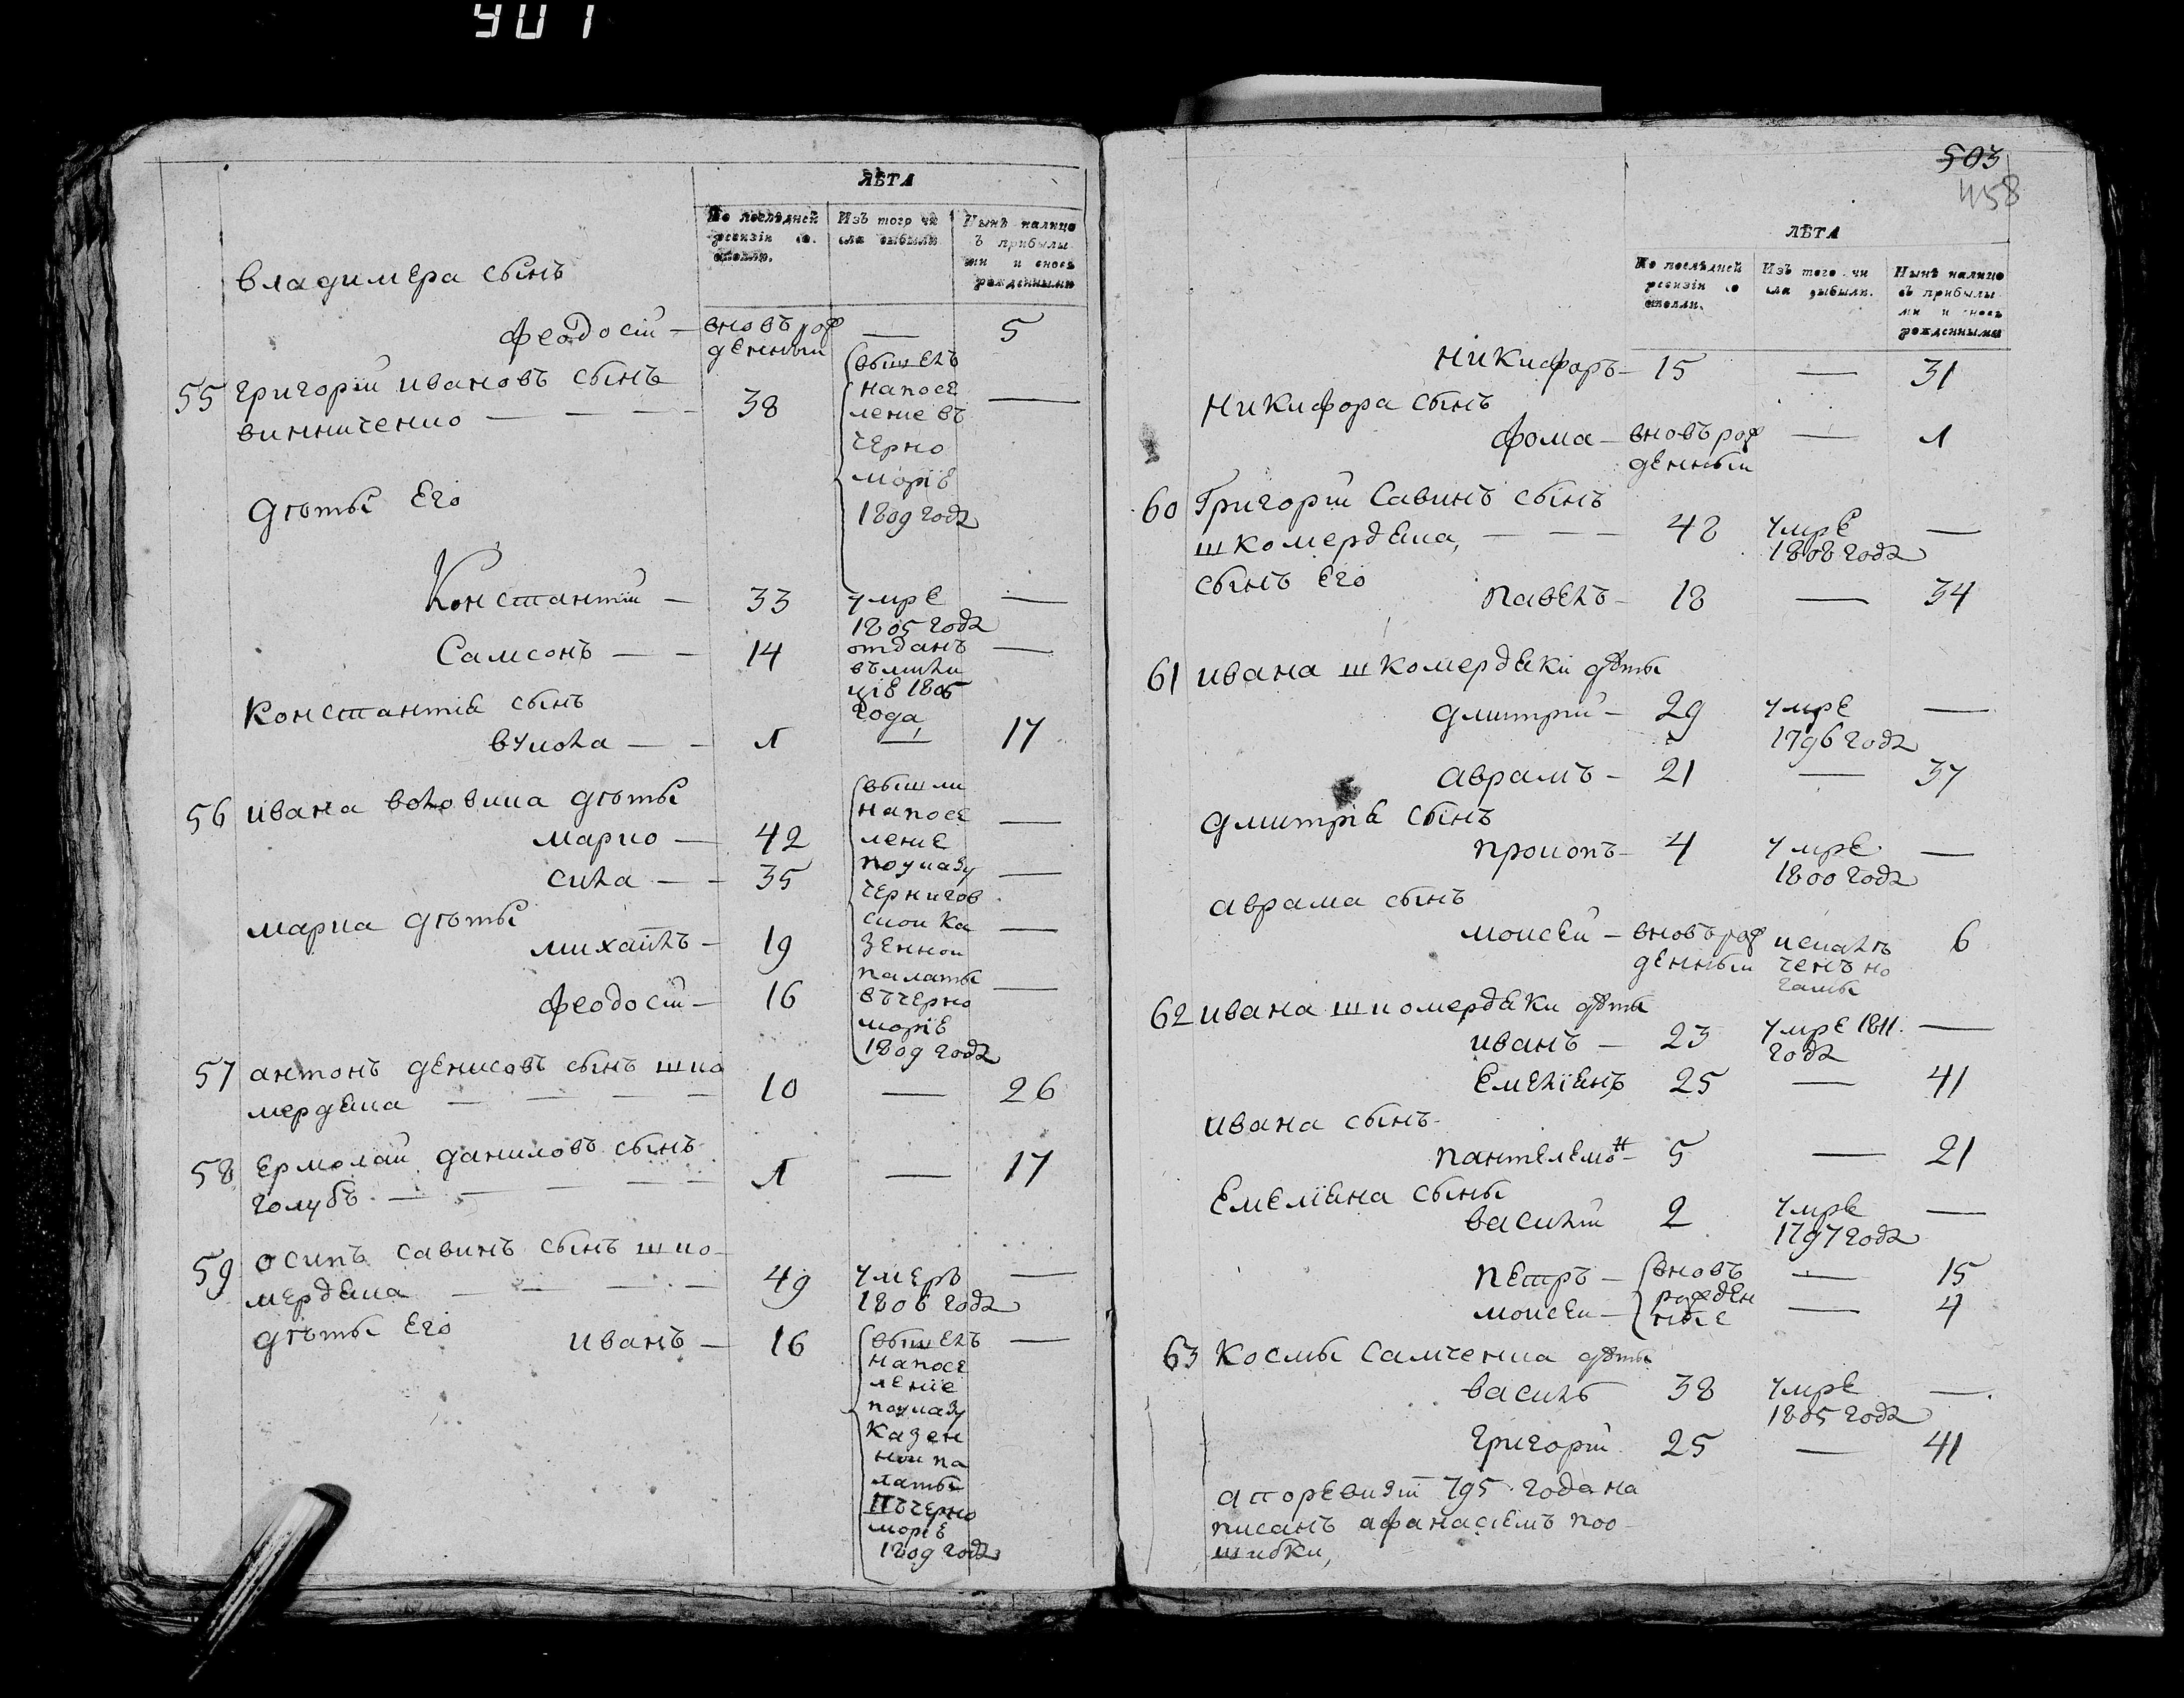 401
ЛѢТА
По послѣдней ревизіи со стояло.
Изъ того чи сла выбыли
Нынѣ налицо съ прибылы ми и вновь рожденными
владимера сынъ
феодосій — вновърож денный — 5
55 григорій ивановъ сынъ
винниченко — 38 вышелъ напосе ление въ черно морїе 1809 года —
дѣты его
Константій — 33 умре 1805 года —
Самсонъ — 14 отданъ въмили цїе 1806 года —
Константіа сынъ
вукола — 1 — 17
56 ивана воловика дѣты
марко — 42 вышли напосе ление поуказу чернигов ской ка зенной палаты въчерно морїе 1809 года —
сила — 35 —
марка дѣты
михайлъ — 19 —
феодосій — 16 —
57 антонъ денисовъ сынъ шко
мердака — 10 — 26
58 Ермолай даниловъ сынъ
голубъ — 1 — 17
59 осипъ савинъ сынъ шко
мердака — 49 умеръ 1806 года —
дѣты его иванъ — 16 вышелъ напосе ленїе поуказу казен ной па латы въчерно морїе 1809 года —
503
458
ЛѢТА
По послѣдней ревизіи со стояли.
Изъ того чи сла выбыли.
Нынѣ налицо съ прибылы ми и вновь рожденными
никифоръ — 15 — 31
никифора сынъ
фома — вновърож денный — 1
60 Григорій Савинъ сынъ
шкомердака, — 48 умре 1808 года —
сынъ его павелъ — 18 — 34
61 ивана шкомердаки дѣты
дмитрий — 29 умре 1796 года —
аврамъ — 21 — 37
дмитріа сынъ
прокопъ — 4 умре 1800 года —
аврама сынъ
моисей — вновърож денный искалѣ ченъ но гамы 6
62 ивана шкомердаки дѣты
иванъ — 23 умре 1811 года —
Емелїанъ 25 — 41
ивана сынъ
пантелемонъ — 5 — 21
Емелїана сыны
василій 2 умре 1797 года —
петръ — вновь рожден ные — 15
моисей — — 4
63 Космы Самченка дѣты
василь 38 умре 1805 года —
григорій 25 — 41
а поревизїи 795 года на
писанъ афанасіемъ поо
шибки,